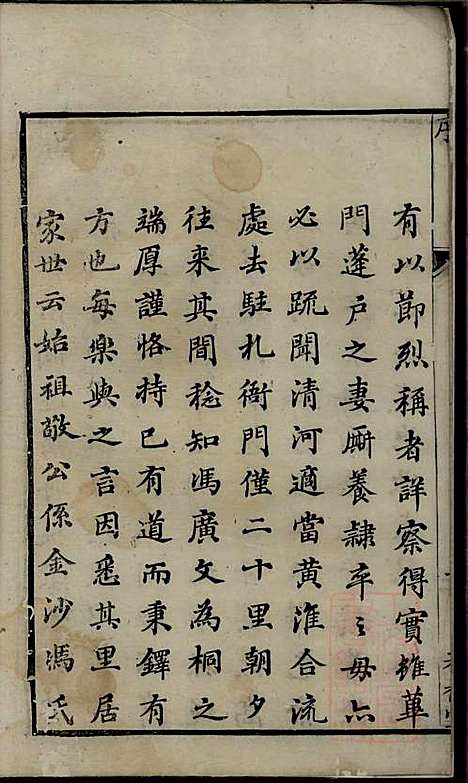 序
有以節烈稱者詳察得實雖蓽
門蓬戶之妻厮養隸卒之母亦
必以疏聞清河適當黃淮合流
處去駐札衙門僅二十里朝夕
往来其間稔知馮廣文為桐之
端厚謹恪持已有道而秉鐸有
方也每樂與之言因悉其里居
家世云始祖敬公係金沙馮氏